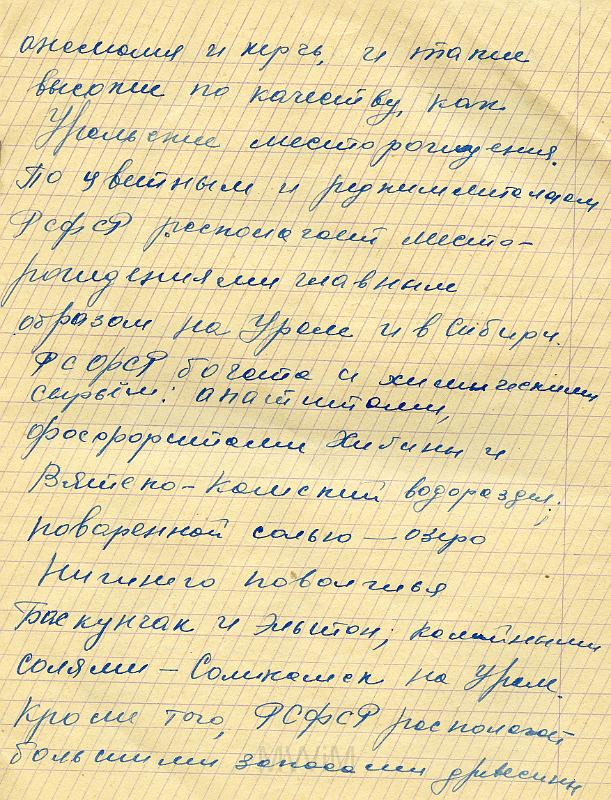 аномалия и Керчь, и такие
высокие по качеству, как
Уральские месторождения.
По цветным и редким металлам
РСФСР располагает место-
рождениями главным
образом на Урале и в Сибири.
РСФСР богата и химическими
сырьём: апатитами,
фосфоритами Хибины и
Вятско-Камский водораздел;
поваренной солью — озеро
Нижнего поволжья
Баскунчак и Эльтон; калийными
солями — Соликамск на Урале.
Кроме того, РСФСР располагает
большими запасами древесины
MWiM